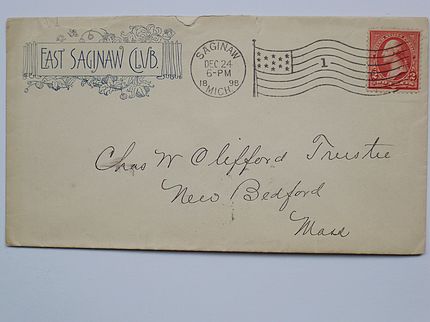 EAST SAGINAW CLVB.
SAGINAW
DEC 24
6-PM
18 98
MICH.
1
2 2
Chas W Clifford Trustee
New Bedford
Mass